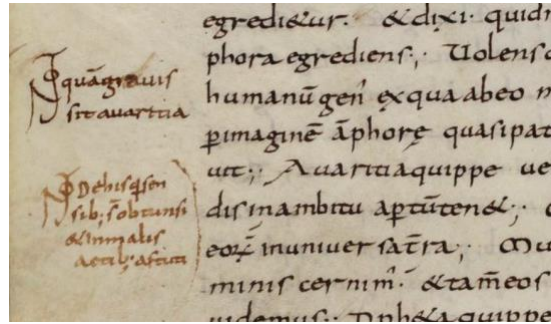 quā grauis
sit auaritia
De his q̄ sen
sib; s̄ obtunsi
& in malis
actib; astuti
egredi&ur. & dixi. quid
phora egrediens;. Uolens
humanū gen̄ ex qua abeo
ꝑ imaginē āphorę quasi pat
uit;. Auaritia quippe ue
dis in ambitu aptū ten&;.
eoꝝ in uniuersa t̄ra;. Mu
minis cernim̄. & tam̄ eos
uidemus;. quippe